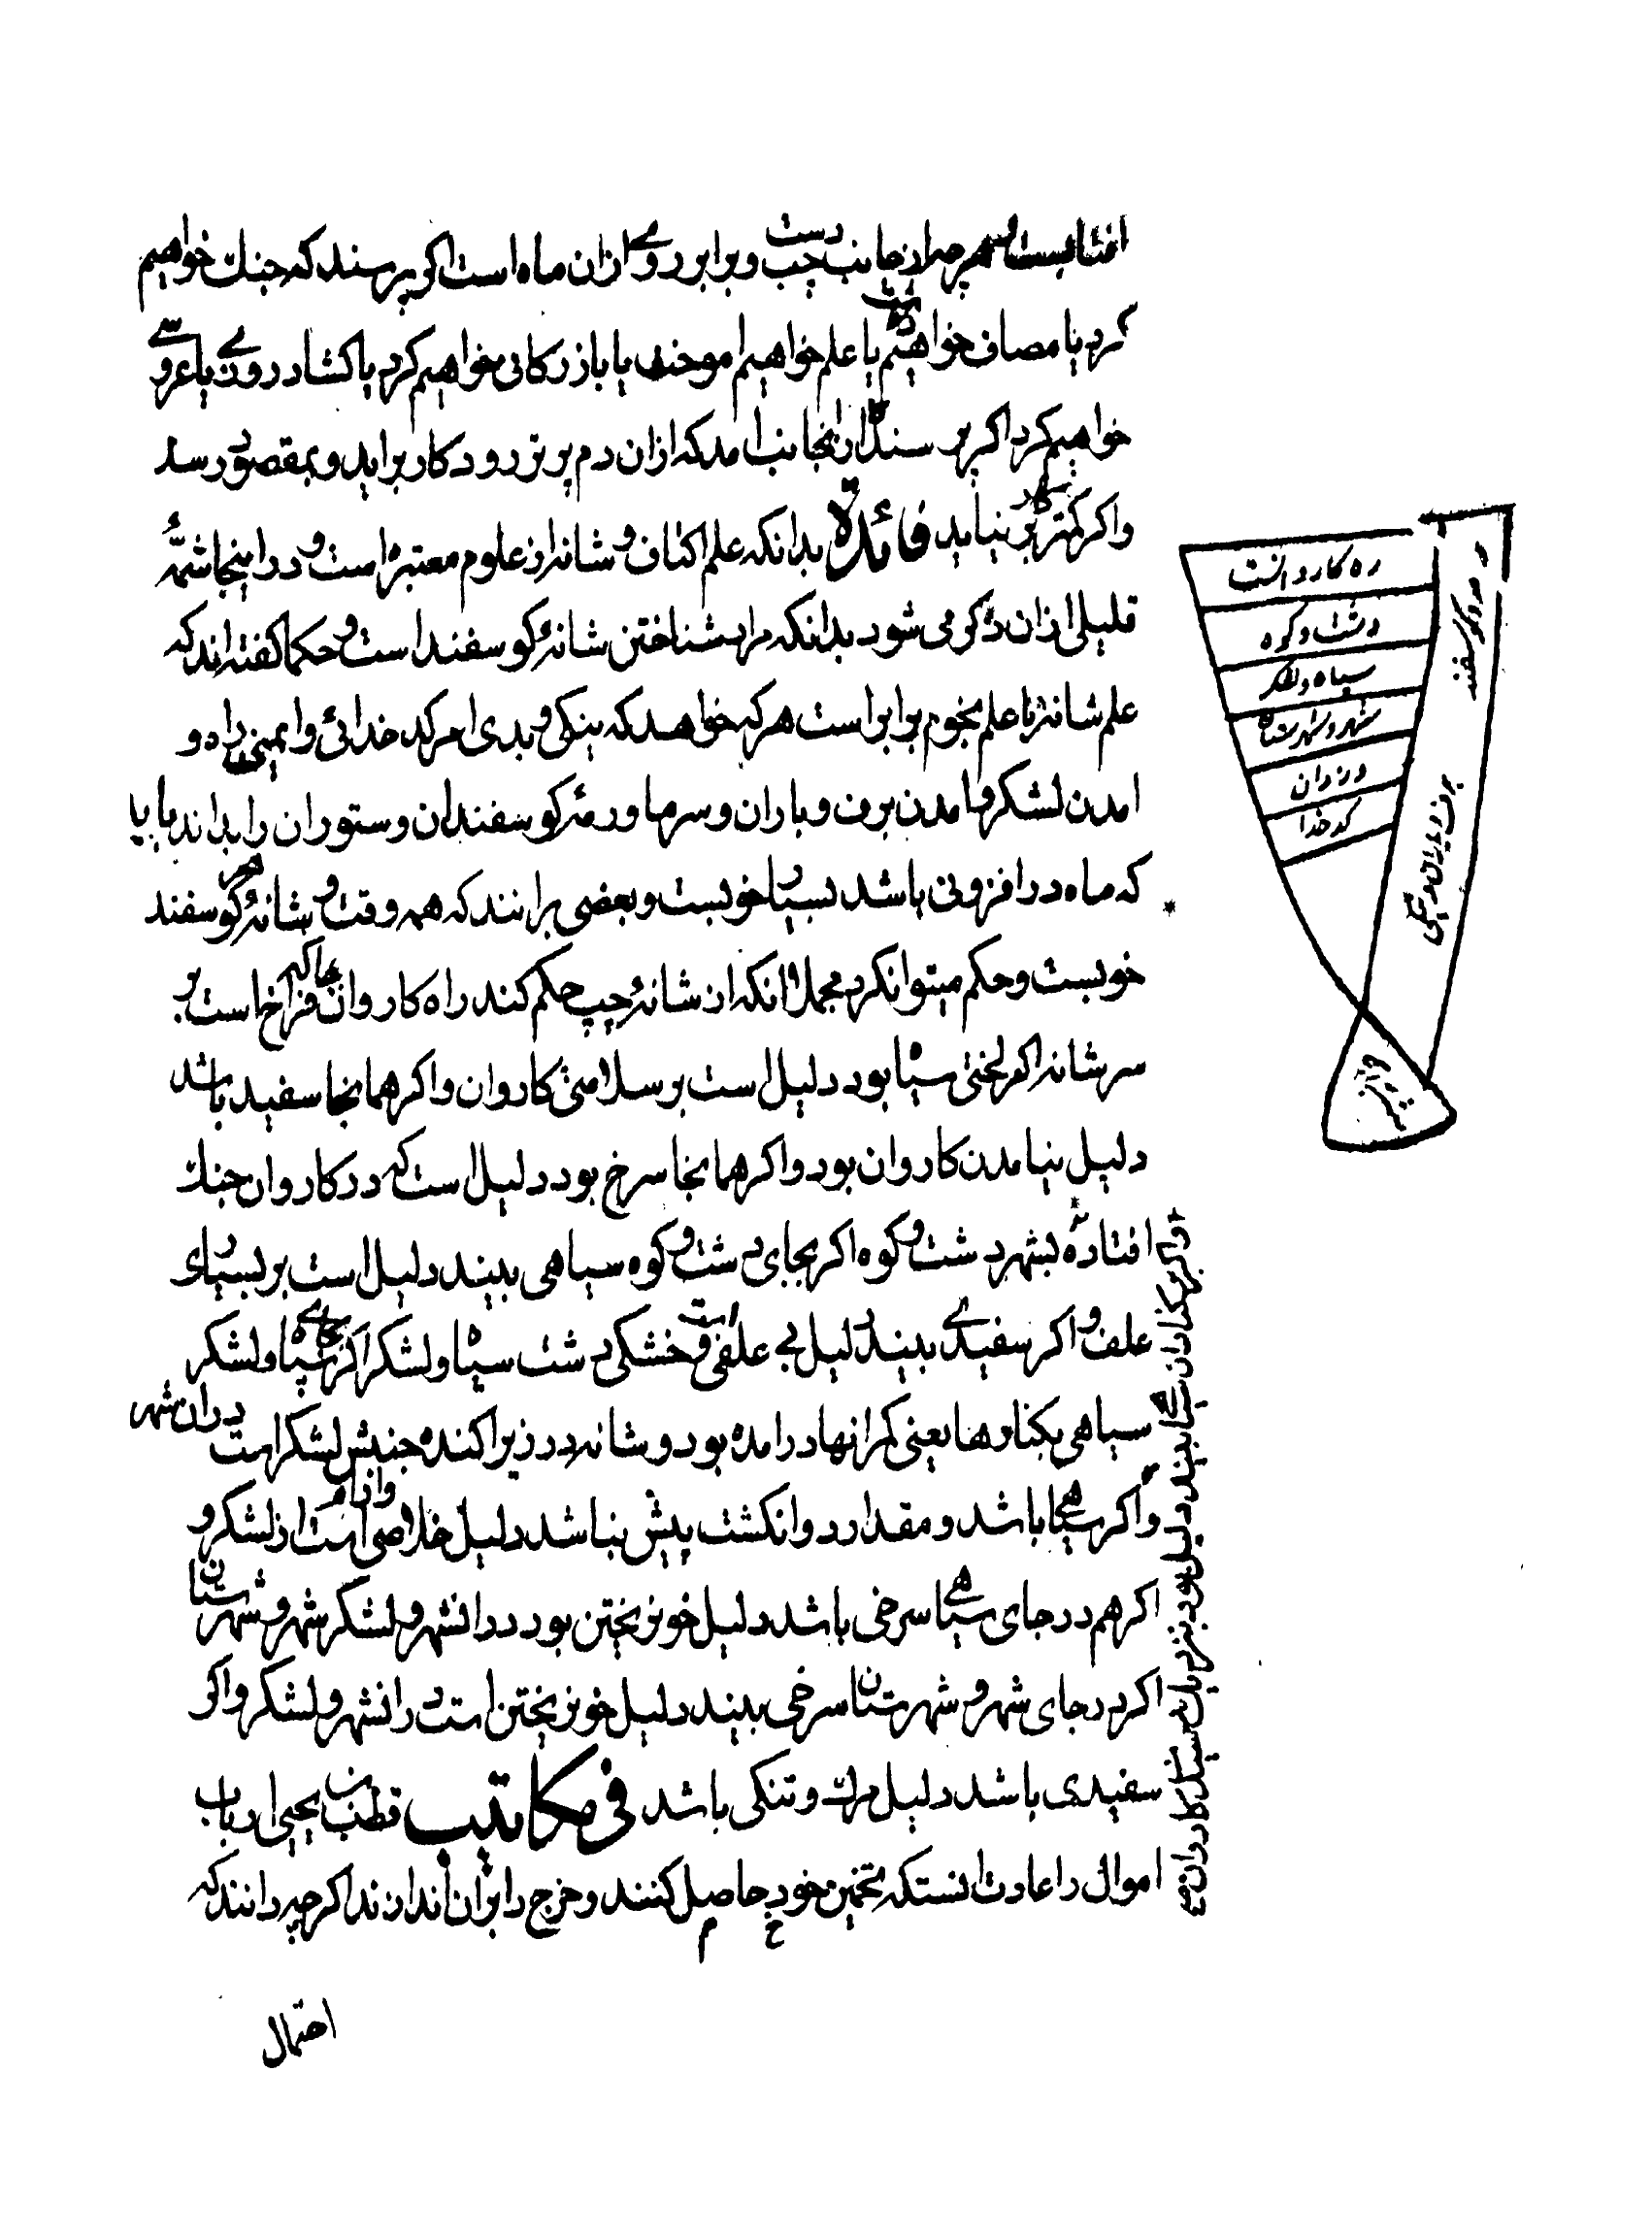 افتابست هرچه از جانب دست چپ و برابر روی ازان ماه است اگر پرسند که جنك خواهیم
کرد یا مصاف خواهیم یا علم خواهیم اموختن یا بازرکانی خواهیم کرد یا کشاد روی یا عروسی
خواهیم کرد اگر پرسنده ازانجانب امد که ازان دم برتر رود کار براید و بمقصود رسد
واکر کمتر نیاید فائدة بدانکه علم اکتاف و شانه از علوم معتبره است و در اینجا شمهٔ
قلیلی ازان ذکر می شود بدانکه مراد شناختن شانهٔ کوسفند است و حکما کفته اند که
علم شانه با علم نجوم برابر است هرکه خواهد که نیکی و بدی امر کدخدائی و ایمنی راه و
امدن لشکر و امدن برف و باران و سرما و رمهٔ کوسفندان و ستوران را بداند باید
که ماه در افزونی باشد بسیار خوبست و بعضی برانند که همه وقت و شانهٔ هر کوسفند
خوبست و حکم میتوان کرد مجملا انکه از شانهٔ چپ حکم کند راه کاروان بدانکه فراخ است بر
سر شانه اگر لختی سیاه بود دلیل است بر سلامتی کاروان واکر همانجا سفید باشد
دلیل نیامدن کاروان بود واکر همانجا سرخ بود دلیل است که در کاروان جنك
افتاده بشهر دشت و کوه اگر بجای دشت و کوه سیاهی بیند دلیل است بر بسیاری
علف و اکر سفیدی بیند دلیل بی علفی و خشکی است دشت سپاه و لشکر اکر بجای سپاه و لشکر
سیاهی بکنارها یعنی کرانها درامده بود و شانه در زیر اکنده جنبش لشکر است دران شهر
واکر سیاهی باشد و مقدار دو انکشت بیش نباشد دلیل خلاصی است از لشکر و
اکر هم در جای سیاهی سرخی باشد دلیل خون ریختن بود در انشهر و لشکر شهر و شهرستان
اکر در جای شهر و شهرستان سرخی بیند دلیل خون ریختن است در انشهر و لشکر واکر
سفیدی باشد دلیل مرك و تنکی باشد فی مکاتیب قطب بن یحیی ارباب
اموال را عادت انستکه تخمین خود حاصل کنند و خرج را بران اندازند اکر چه دانند که
احتمال
ره کاروانست
دشت و کوه
سپاه و لشکر
شهر و شهرستان
دزدان
کدخدا
کوسفند
برف و باران و تنکی